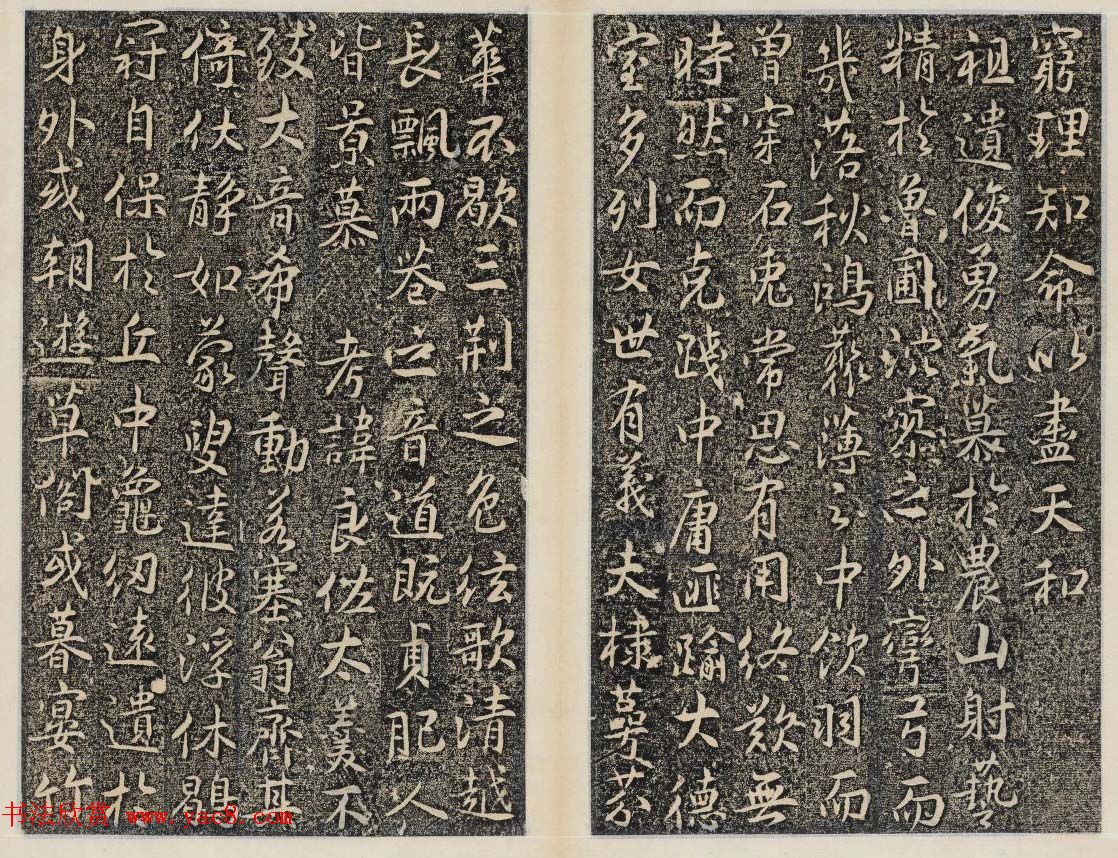 窮理知命以盡天和
祖遺俊勇氣慕於農山射藝
精於魯圃泬寥之外彎弓而
幾落秋鴻藂薄之中飲羽而
曾穿石兎常思有用終歎無
時然而克踐中庸匪踰大德
室多列女世有義夫棣萼芬
華不歇三荆之色弦歌清越
長飄兩巷之音道既貞肥人
皆景慕 考諱良佐太羹不
致大音希聲動若塞翁齊其
倚伏靜如蒙叟達彼浮休鶡
冠自保於丘中龜紉遠遺於
身外或朝遊草閣或暮宴竹
书法欣赏 www.yac8.com